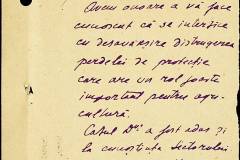 Avem onoare a vă face
cunoscut că se interzice
cu desăvârșire distrugerea
perdelei de protecție
care are un rol foarte
important pentru agri-
cultură.
Cazul Dvs a fost adus și
la cunoștința sectorului